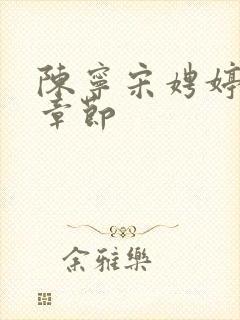 陳寧宋娉婷
章節
余雅樂